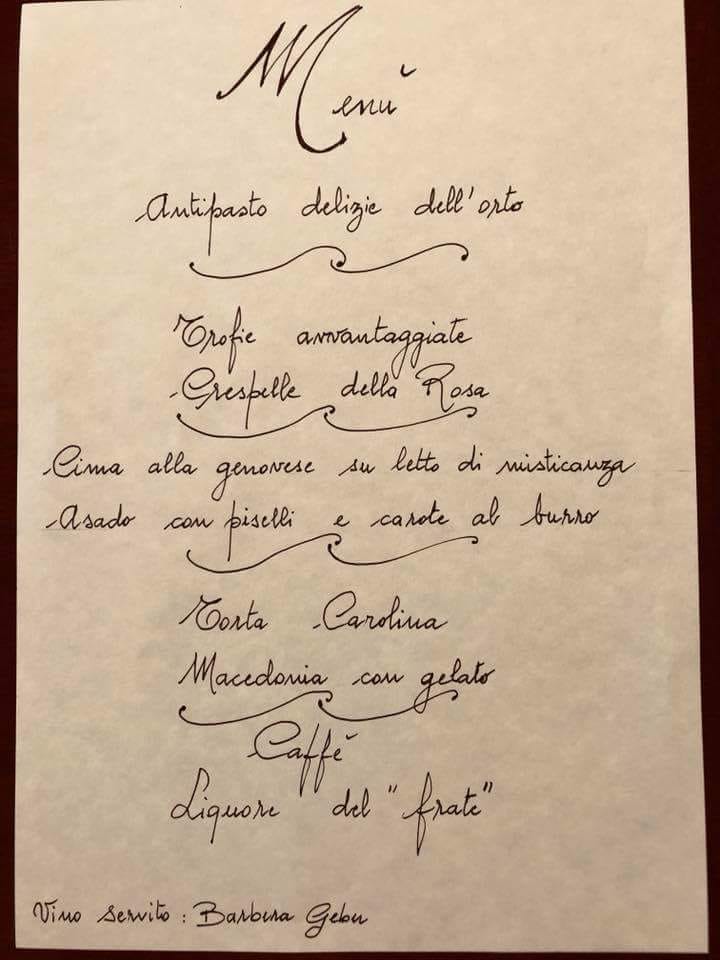 Menù
Antipasto delizie dell'orto
Trofie avvantaggiate
Crespelle della Rosa
Cima alla genovese su letto di misticanza
Asado con piselli e carote al burro
Torta Carolina
Macedonia con gelato
Caffè
Liquore del "frate"
Vino servito: Barbera Gebu